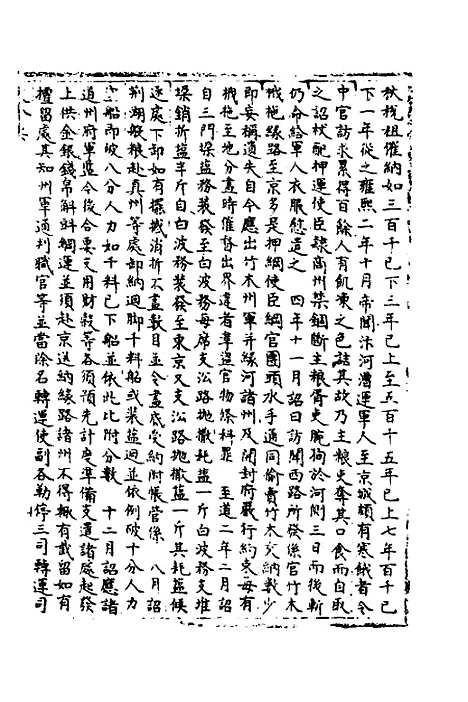 杖稅租催納如三百千已下三年已上至五百十五年已上七年百千已
下一年從之雍熙二年十月帝聞汴河漕運軍人至京城頗有寒餓者令
中官訪求累得百餘人有飢凍之色詰其故乃主粮吏奪其口食而自取
之詔杖配押運使臣隸商州禁錮斷主粮胥吏腕狥於河側三日而後斬
仍令給軍人衣服慰遣之 四年十一月詔曰訪聞西路所發係官竹木
栰拖緣路至京多是押綱使臣綱官團頭水手通同偷賣竹木交納數少
即妄稱遺失自今應出竹木州軍并緣河諸州及開封府嚴行約束每有
栰拖至地分晝時催督出界違者準盜官物條科罪 至道二年二月詔
自三門垜鹽務裝發至白波務每席支沿路拋撒耗鹽一斤白波務支堆
垜銷折鹽半斤自白波務裝發至東京又支沿路拋撒鹽一斤其耗鹽候
逐處下卸如有摆撼消折不盡數目並令盡底受納附帳管係 八月詔
荊湖般粮赴真州等處卸納迴脚千料船或裝鹽迴並依例破十分人力
空船即破八分人力如千料已下船並依此比附分數 十二月詔應諸
道州府軍監今後合要支用財穀等各須預先計度準備支遣諸處起發
上供金銀錢帛斛㪷綱運並須赴京送納緣路諸州不得輙有截留如有
擅留處其知州軍通判職官等並當除名轉運使副各勒停三司轉運司